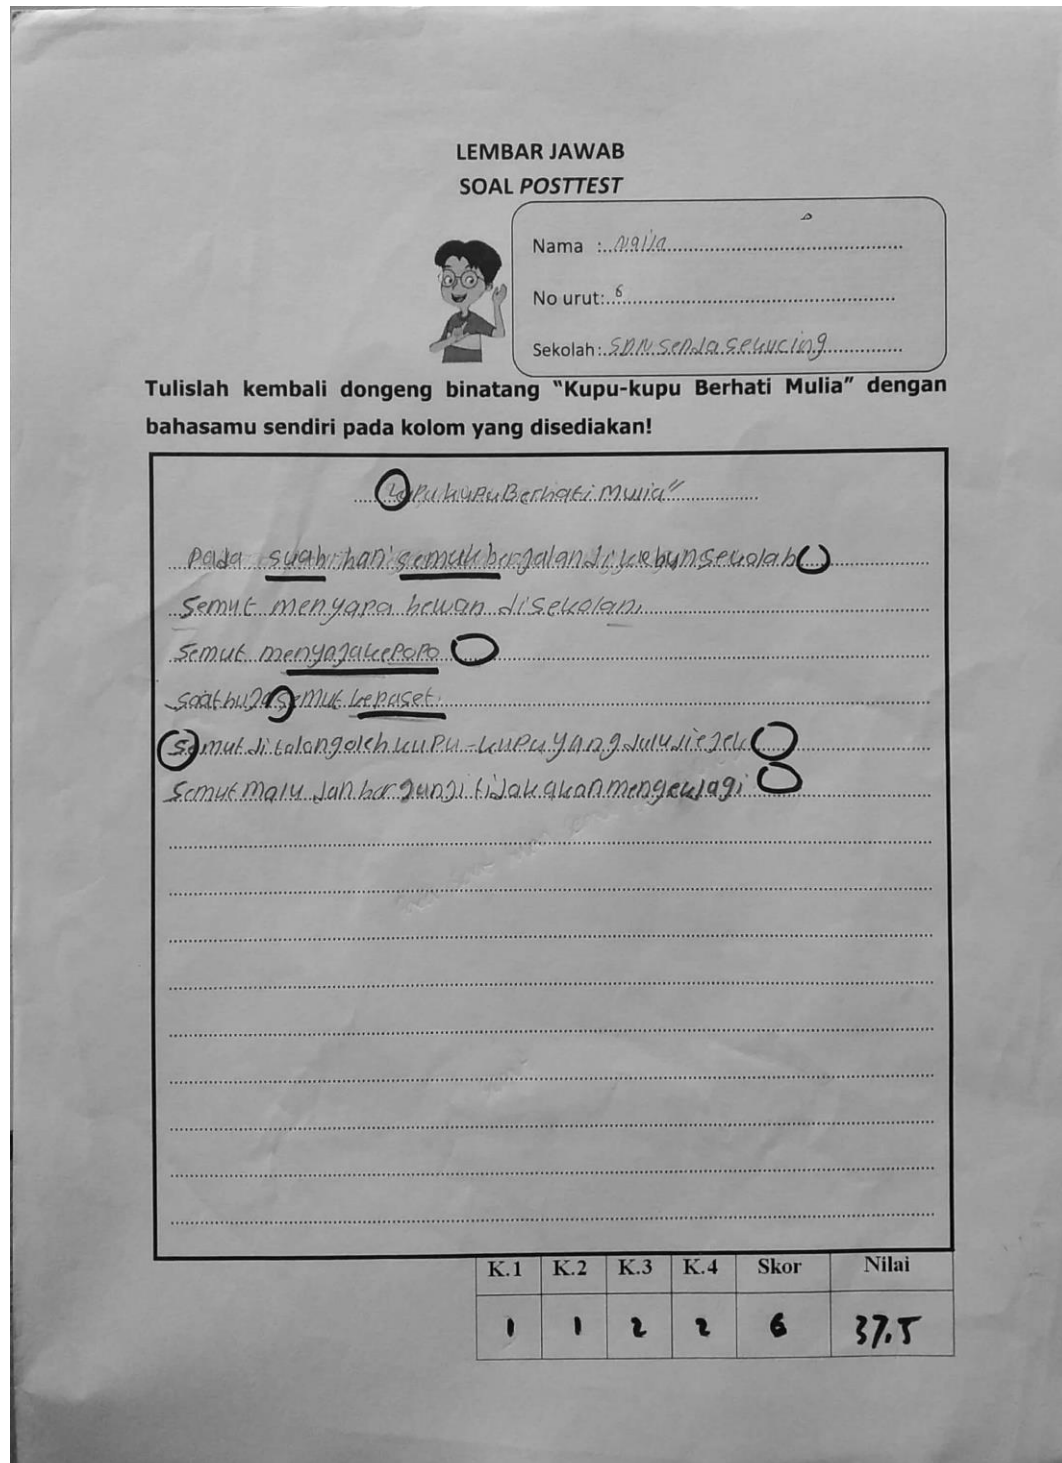 LEMBAR JAWAB
SOAL POSTTEST
Nama : Naila
No urut: 6
Sekolah: SDN
Tulislah kembali dongeng binatang “Kupu-kupu Berhati Mulia” dengan
bahasamu sendiri pada kolom yang disediakan!
kupu kupu Berhati Mulia"
Pada suah hari semuk berjalan di kebun sekolah
Semut menyapa hewan disekolah
Semut
semut
Semut di tolang oleh kupu-kupu yang dulu diejek
Semut malu dan berjanji tidak akan lagi
K.1 K.2 K.3 K.4 Skor Nilai
1 1 2 2 6 37.5